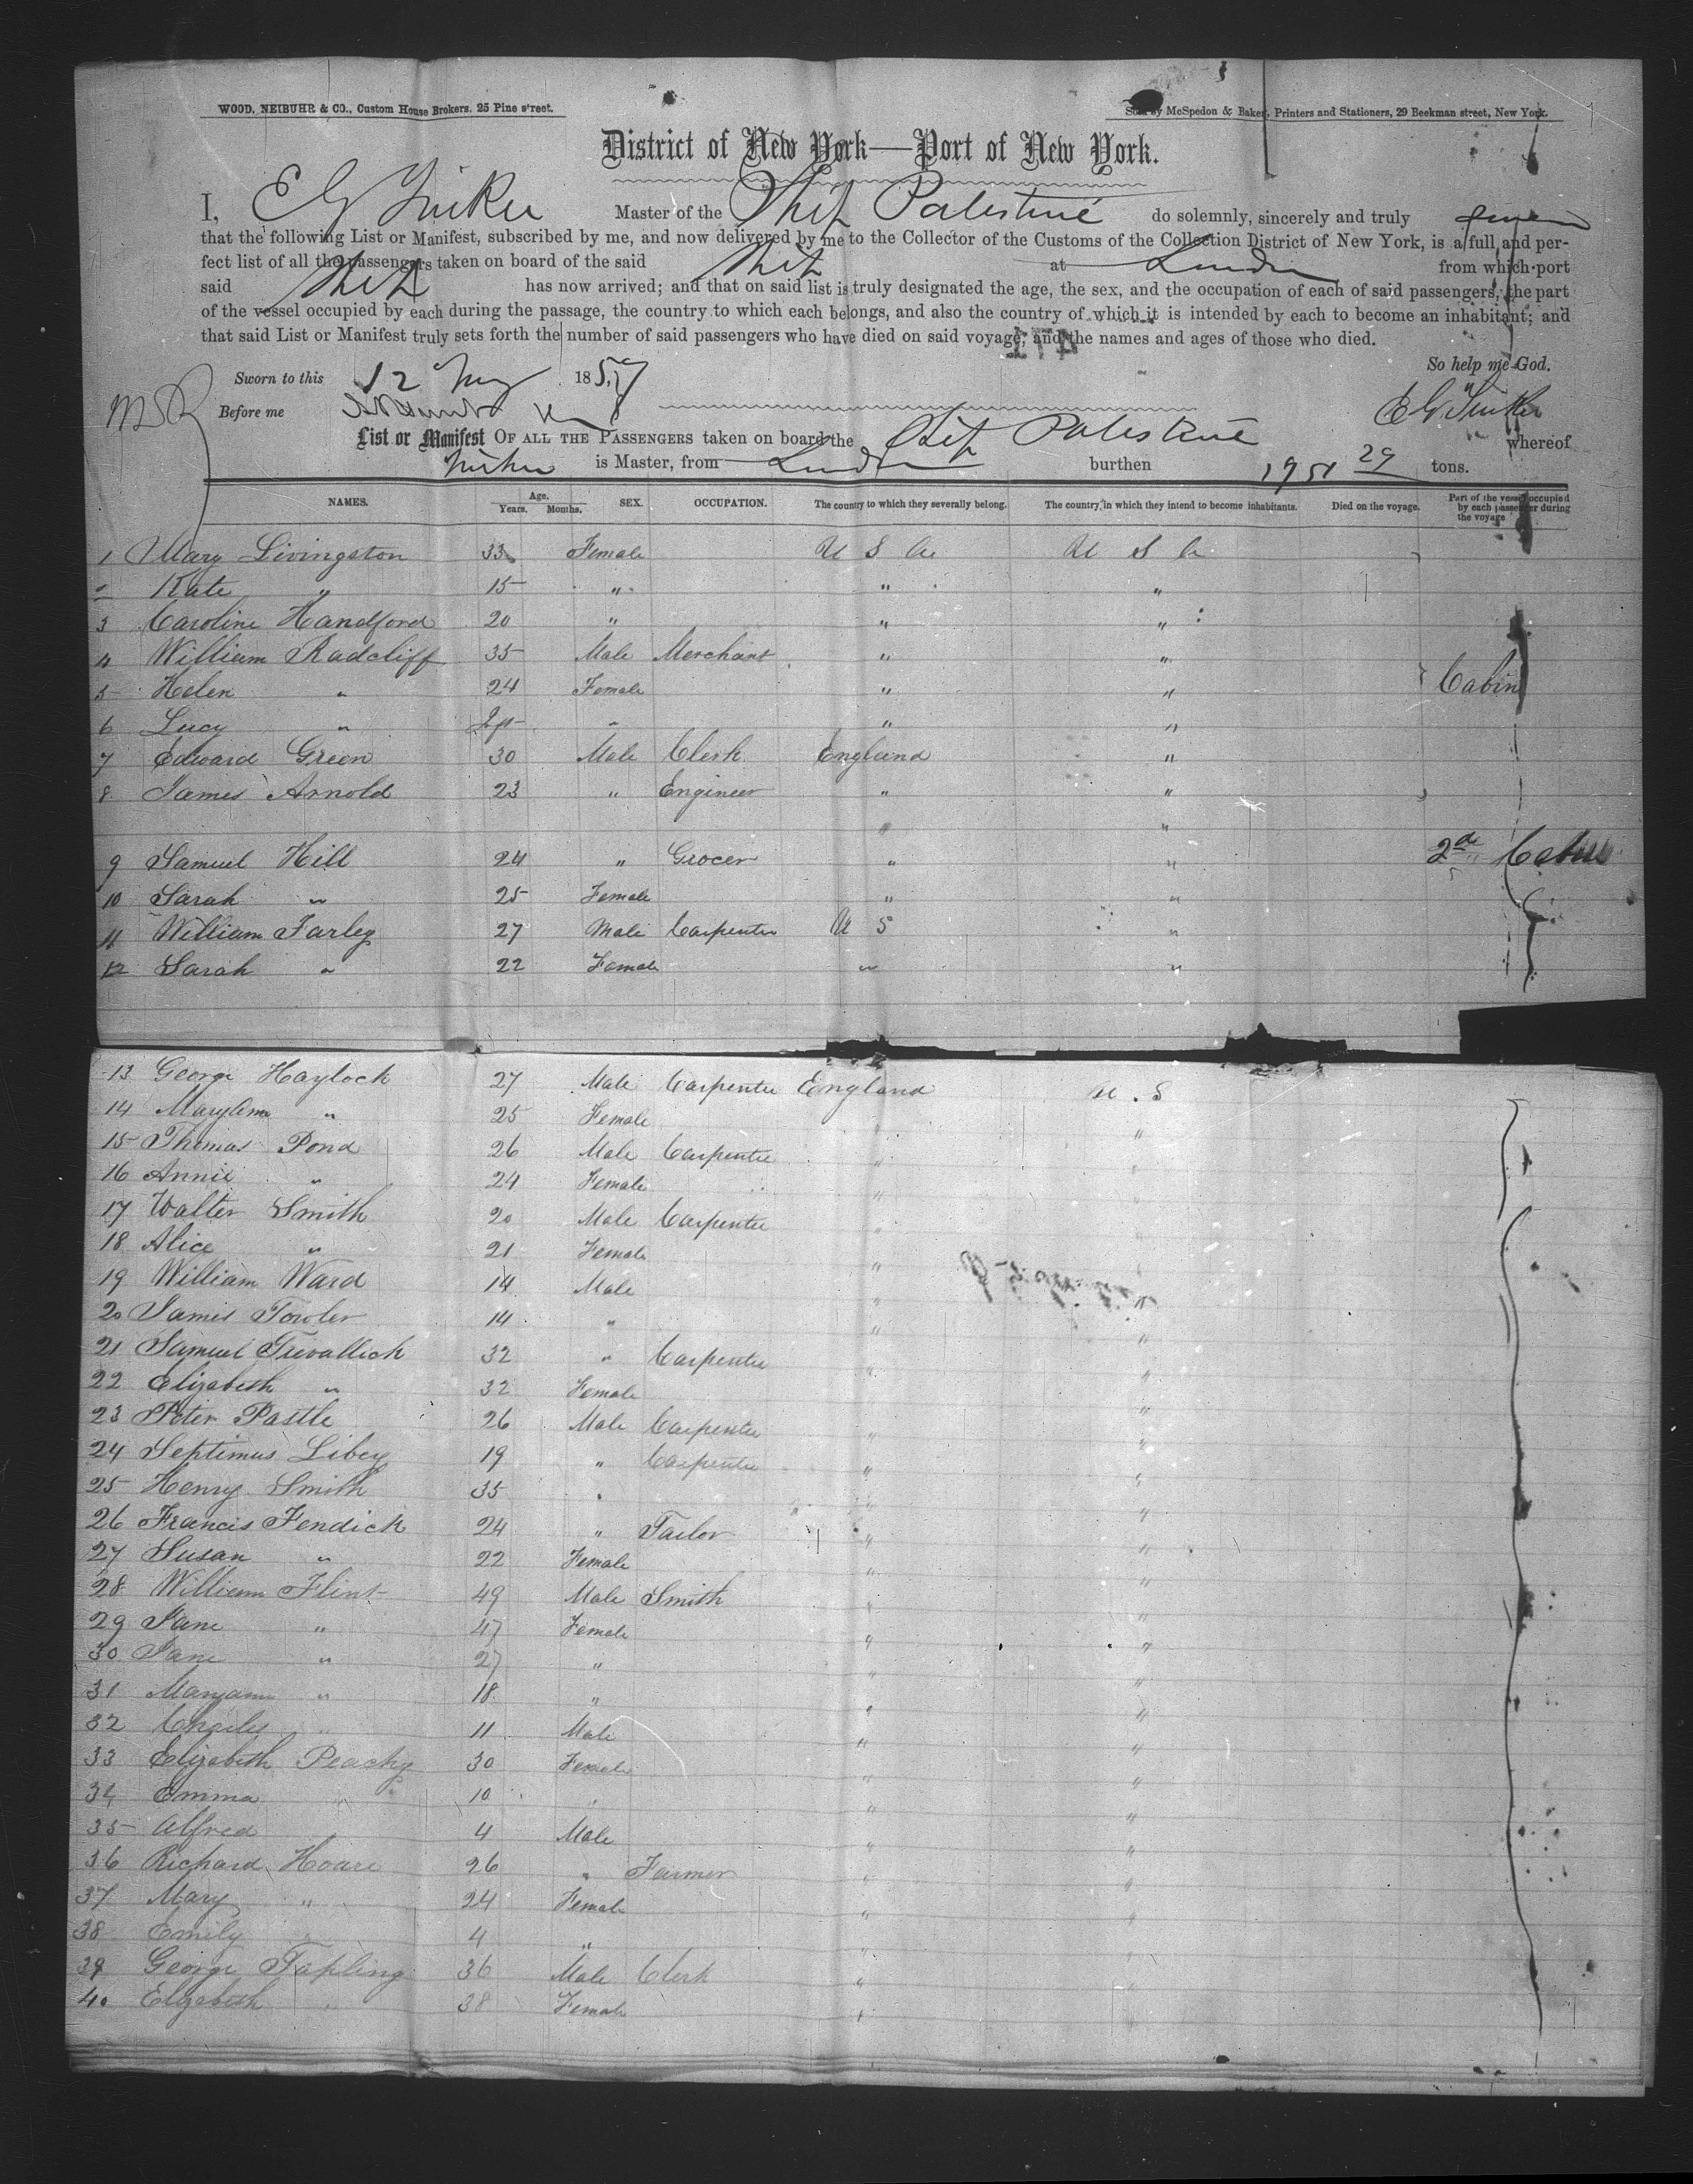 WOOD, NEIBUHR & CO., Custom House Brokers. 25 Pine street.
Sold by McSpedon & Baker, Printers and Stationers, 29 Beekman street, New York.
District of New York—Port of New York.
I, E G Tinker Master of the Ship Palestine do solemnly, sincerely and truly swear
that the following List or Manifest, subscribed by me, and now delivered by me to the Collector of the Customs of the Collection District of New York, is a full and per-
fect list of all the passengers taken on board of the said Ship at London from which port
said Ship has now arrived; and that on said list is truly designated the age, the sex, and the occupation of each of said passengers, the part
of the vessel occupied by each during the passage, the country to which each belongs, and also the country of which it is intended by each to become an inhabitant; and
that said List or Manifest truly sets forth the number of said passengers who have died on said voyage, and the names and ages of those who died.
So help me God.
Sworn to this 12 185
Before me
E G Tinker
List or Manifest OF ALL THE PASSENGERS taken on board the Ship Palestine whereof
Tinker is Master, from London burthen 1951 29 tons.
NAMES. Age. Years. Months. SEX. OCCUPATION. The country to which they severally belong. The country in which they intend to become inhabitants. Died on the voyage. Part of the vessel occupied by each passenger during the voyage
1 Mary Livingston 33 Female U S A U S A
2 Kate " 15 " " "
3 Caroline Handford 20 " " "
4 William Radcliff 35 Male Merchant " "
5 Helen " 24 Female " " Cabin
6 Lucy " " " "
7 Edward Green 30 Male Clerk England "
8 James Arnold 23 " Engineer " "
" "
9 Samuel Hill 24 " Grocer " " 2nd Cabin
10 Sarah " 25 Female " "
11 William Farley 27 Male Carpenter U S "
12 Sarah " 22 Female " "
13 George Haylock 27 Male Carpenter England U.S
14 Maryann " 25 Female " "
15 Thomas Pond 26 Male Carpenter " "
16 Annie " 24 Female " "
17 Walter Smith 20 Male Carpenter " "
18 Alice " 21 Female " "
19 William Ward 14 Male " "
20 James Fowler 14 " " "
21 Samuel Trevallick 32 " Carpenter " "
22 Elizabeth " 32 Female " "
23 Peter Pastle 26 Male Carpenter " "
24 Septimus Libey 19 " Carpenter " "
25 Henry Smith 35 " " "
26 Francis Fendick 24 " Tailor " "
27 Susan " 22 Female " "
28 William Flint 49 Male Smith " "
29 Jane " 47 Female " "
30 Jane " 27 " " "
31 Maryann " 18 " " "
32 Charles " 11 Male " "
33 Elizabeth Peachy 30 Female " "
34 Emma " 10 " " "
35 Alfred 4 Male " "
36 Richard Hoare 26 " Farmer " "
37 Mary " 24 Female " "
38 Emily " 4 " " "
39 George Tapling 36 Male Clerk " "
40 Elizabeth " 38 Female " "